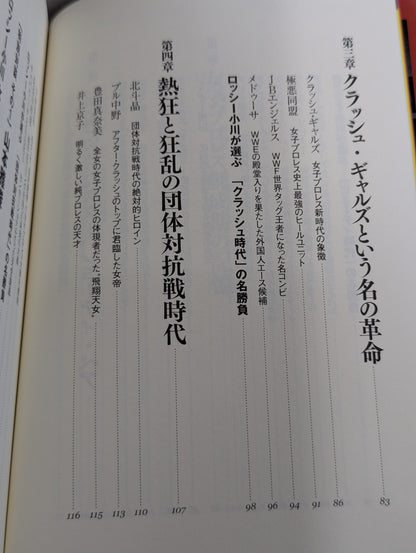 第三章 クラッシュ・ギャルズという名の革命 83
クラッシュ・ギャルズ 女子プロレス新時代の象徴 86
極悪同盟 女子プロレス史上最強のヒールユニット 91
JBエンジェルス WWF世界タッグ王者になった名コンビ 94
メドゥーサ WWEの殿堂入りを果たした外国人エース候補 96
ロッシー小川が選ぶ 「クラッシュ時代」の名勝負 98
第四章 熱狂と狂乱の団体対抗戦時代 107
北斗晶 団体対抗戦時代の絶対的ヒロイン 110
ブル中野 アフター・クラッシュのトップに君臨した女帝 113
豊田真奈美 全女の女子プロレスの体現者だった“飛翔天女” 115
井上京子 明るく激しい純プロレスの天才 116